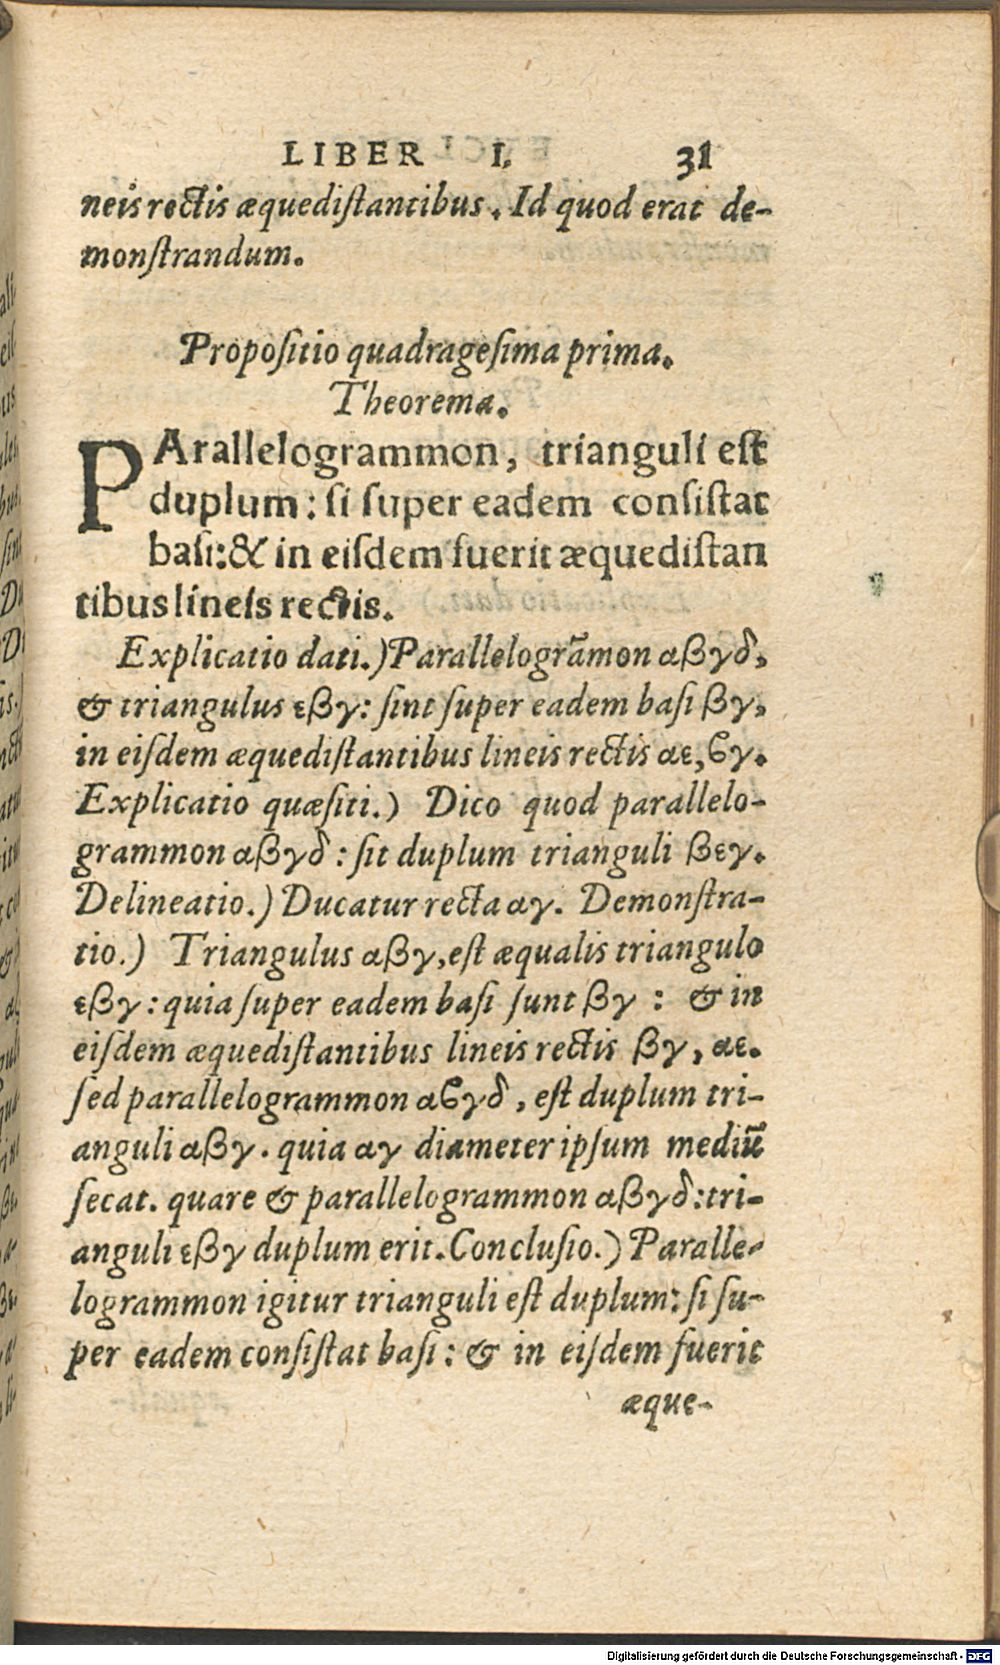 LIBER I. 31
neis rectis æquediſtantibus. Id quod erat de-
monſtrandum.
Propoſitio quadrageſima prima.
Theorema.
PArallelogrammon, trianguli eſt
duplum: ſi ſuper eadem conſiſtat
baſi: & in eiſdem fuerit æquediſtan
tibus lineis rectis.
Explicatio dati.) Parallelogrāmon αβγδ,
& triangulus εβγ: ſint ſuper eadem baſi βγ,
in eiſdem æquediſtantibus lineis rectis αε, ϐγ.
Explicatio quæſiti.) Dico quod parallelo-
grammon αβγδ: ſit duplum trianguli βεγ.
Delineatio.) Ducatur recta αγ. Demonſtra-
tio.) Triangulus αβγ, eſt æqualis triangulo
εβγ: quia ſuper eadem baſi ſunt βγ: & in
eiſdem æquediſtantibus lineis rectis βγ, αε.
ſed parallelogrammon αϐγδ, eſt duplum tri-
anguli αβγ. quia αγ diameter ipſum mediū
ſecat. quare & parallelogrammon αβγδ: tri-
anguli εβγ duplum erit. Concluſio.) Paralle-
logrammon igitur trianguli eſt duplum: ſi ſu-
per eadem conſiſtat baſi: & in eiſdem fuerit
æque-
Digitalisierung gefördert durch die Deutsche Forschungsgemeinschaft - DFG